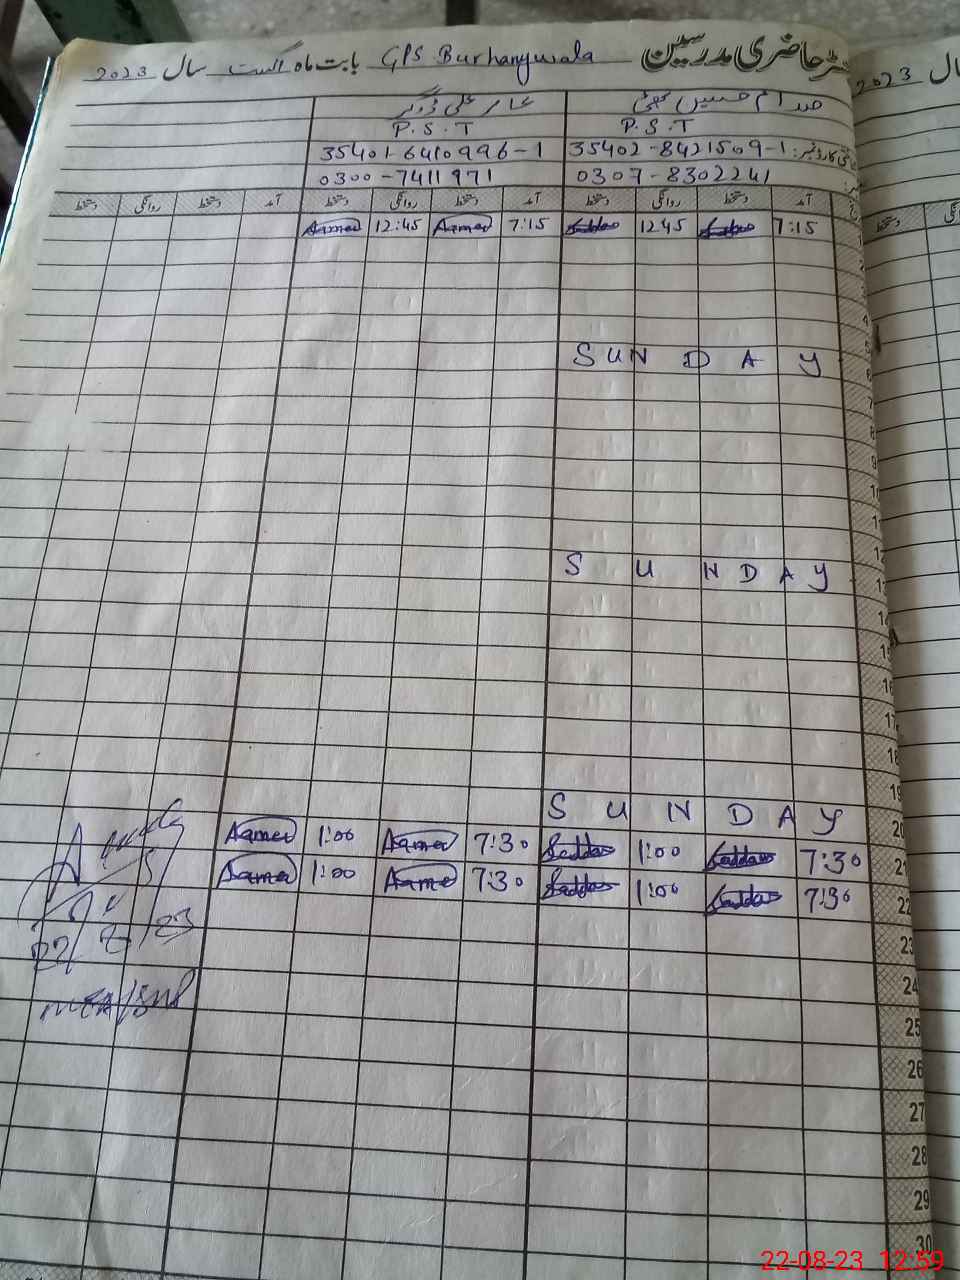 رجسٹر حاضری مدرسین GPS Burhanywala بابت ماہ اگست سال 2023
صدام حسین بھٹی عامر علی ڈوگر
P.S.T P.S.T
35402-8421509-1 35401-6410996-1
0307-8302241 0300-7411971
آمد دستخط روانگی دستخط آمد دستخط روانگی دستخط آمد دستخط روانگی دستخط
7:15 Saddam 1245 Saddam 7:15 Aamer 12:45 Aamer
SUNDAY
SUNDAY
SUNDAY
20
21 7:30 Saddam 1:00 Saddam 7:30 Aamer 1:00 Aamer
22 7:30 Saddam 1:00 Saddam 7:30 Aamer 1:00 Aamer
22/8/23
23
24
25
26
27
28
29
30
سال 2023
22-08-23 12:59